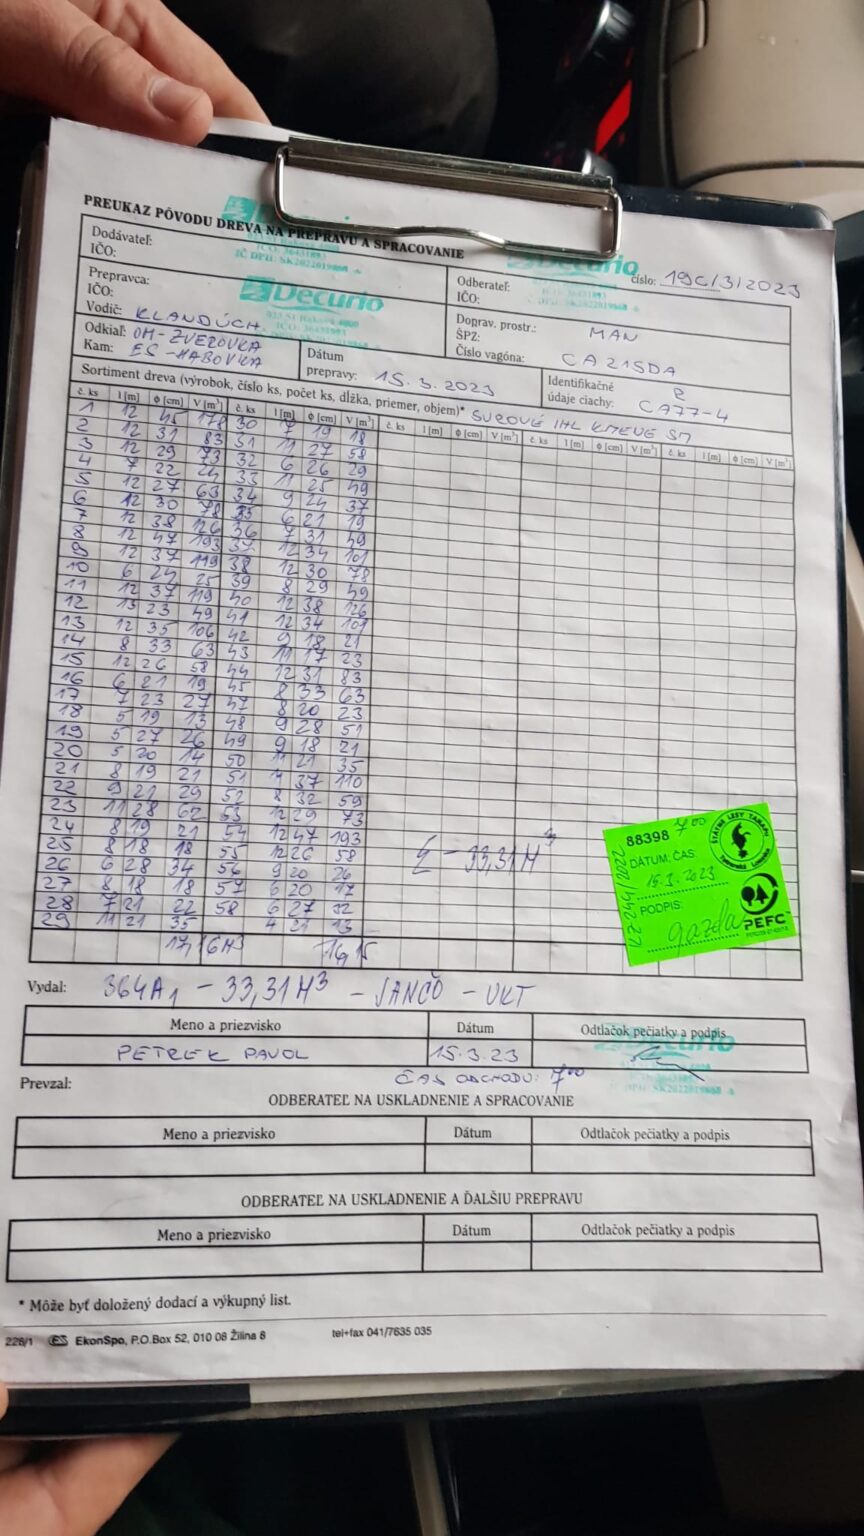 PREUKAZ PÔVODU DREVA NA PREPRAVU A SPRACOVANIE
Decurio
Decurio
Dodávateľ:
IČO:
IČO: 36431893
IČ DPH: SK2022019868
číslo: 19C/3/2023
Odberateľ:
IČO:
Prepravca:
IČO:
Vodič: KLANDÚCH.
Decurio
Doprav. prostr.: MAN
ŠPZ:
Číslo vagóna: CA 215DA
Odkiaľ: OM-ZVEROVKA
Kam: ES-HABOVKA
Dátum
prepravy: 15.3.2023
Identifikačné
údaje ciachy: CA77-4
Sortiment dreva (výrobok, číslo ks, počet ks, dĺžka, priemer, objem)* SUROVÉ IHL KMENE SM
č. ks l [m] ϕ [cm] V [m³] č. ks l [m] ϕ [cm] V [m³] č. ks l [m] ϕ [cm] V [m³] č. ks l [m] ϕ [cm] V [m³] č. ks l [m] ϕ [cm] V [m³]
1 12 45 178 30 7 19 18
2 12 31 83 31 11 27 58
3 12 29 73 32 6 26 29
4 7 22 24 33 11 25 49
5 12 27 63 34 9 24 37
6 12 30 78 35 6 21 19
7 12 38 126 36 7 31 49
8 12 47 193 37 12 34 101
9 12 37 119 38 12 30 78
10 6 24 25 39 8 29 49
11 12 37 119 40 12 38 126
12 13 23 49 41 12 34 101
13 12 35 106 42 9 18 21
14 8 33 63 43 11 17 23
15 12 26 58 44 12 31 83
16 6 21 19 45 8 33 63
17 7 23 27 47 8 20 23
18 5 19 13 48 9 28 51
19 5 27 26 49 9 18 21
20 5 20 14 50 11 21 35
21 8 19 21 51 37 110
22 9 21 29 52 8 32 59
23 11 28 62 53 12 29 73
24 8 19 21 54 12 47 193
25 8 18 18 55 12 26 58
26 6 28 34 56 9 20 26
27 8 18 18 57 6 20 17
28 7 21 22 58 6 27 32
29 11 21 35 4 21 13
17,16 M³ 16,15
Σ - 33,31 M³
88398 7⁰⁰
DÁTUM: ČAS:
15.3.2023
PODPIS:
gazda
ŠTÁTNE LESY TANAPU
PEFC
Vydal: 364A1 - 33,31 M³ - JANČO - UKT
Meno a priezvisko Dátum Odtlačok pečiatky a podpis
PETREK PAVOL 15.3.23
Decurio
Prevzal:
ČAS ODCHODU: 7⁰⁰
ODBERATEĽ NA USKLADNENIE A SPRACOVANIE
Meno a priezvisko Dátum Odtlačok pečiatky a podpis
ODBERATEĽ NA USKLADNENIE A ĎALŠIU PREPRAVU
Meno a priezvisko Dátum Odtlačok pečiatky a podpis
* Môže byť doložený dodací a výkupný list.
228/1 ES EkonSpo, P.O.Box 52, 010 08 Žilina 8 tel+fax 041/7635 035